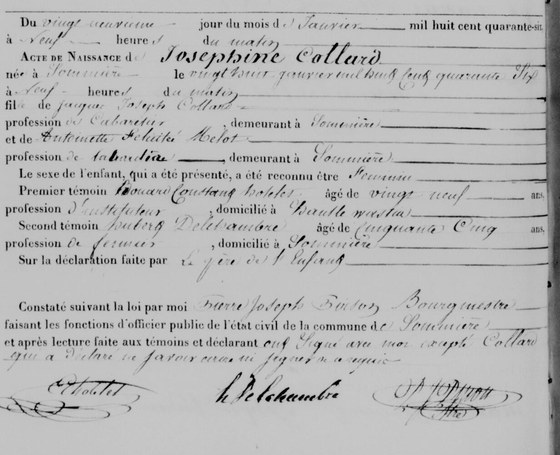 Du vingt neuvième jour du mois de Janvier mil huit cent quarante-six
à Neuf heures du matin
ACTE DE NAISSANCE de Josephine Collard
née à Sommière le vingt huit janvier mil huit Cent quarante Six
à Neuf heures du matin
fille de Jacques Joseph Collard
profession de Cabaretier, demeurant à Sommière
et de Antoinette Félicité Mélot
profession de Cabaretière, demeurant à Sommière
Le sexe de l'enfant, qui a été présenté, a été reconnu être Feminin
Premier témoin Edouard Constant âgé de vingt neuf ans,
profession d'instituteur, domicilié à
Second témoin Hubert Delchambre âgé de Cinquante Cinq ans.
profession de fermier, domicilié à Sommière
Sur la déclaration faite par Le père de l'Enfant
Constaté suivant la loi par moi Pierre Joseph Bourgmestre
faisant les fonctions d'officier public de l'état civil de la commune de Sommière
et après lecture faite aux témoins et déclarant ont Signé avec moi excepté Collard
qui a déclaré ne savoir signer
h Delchambre